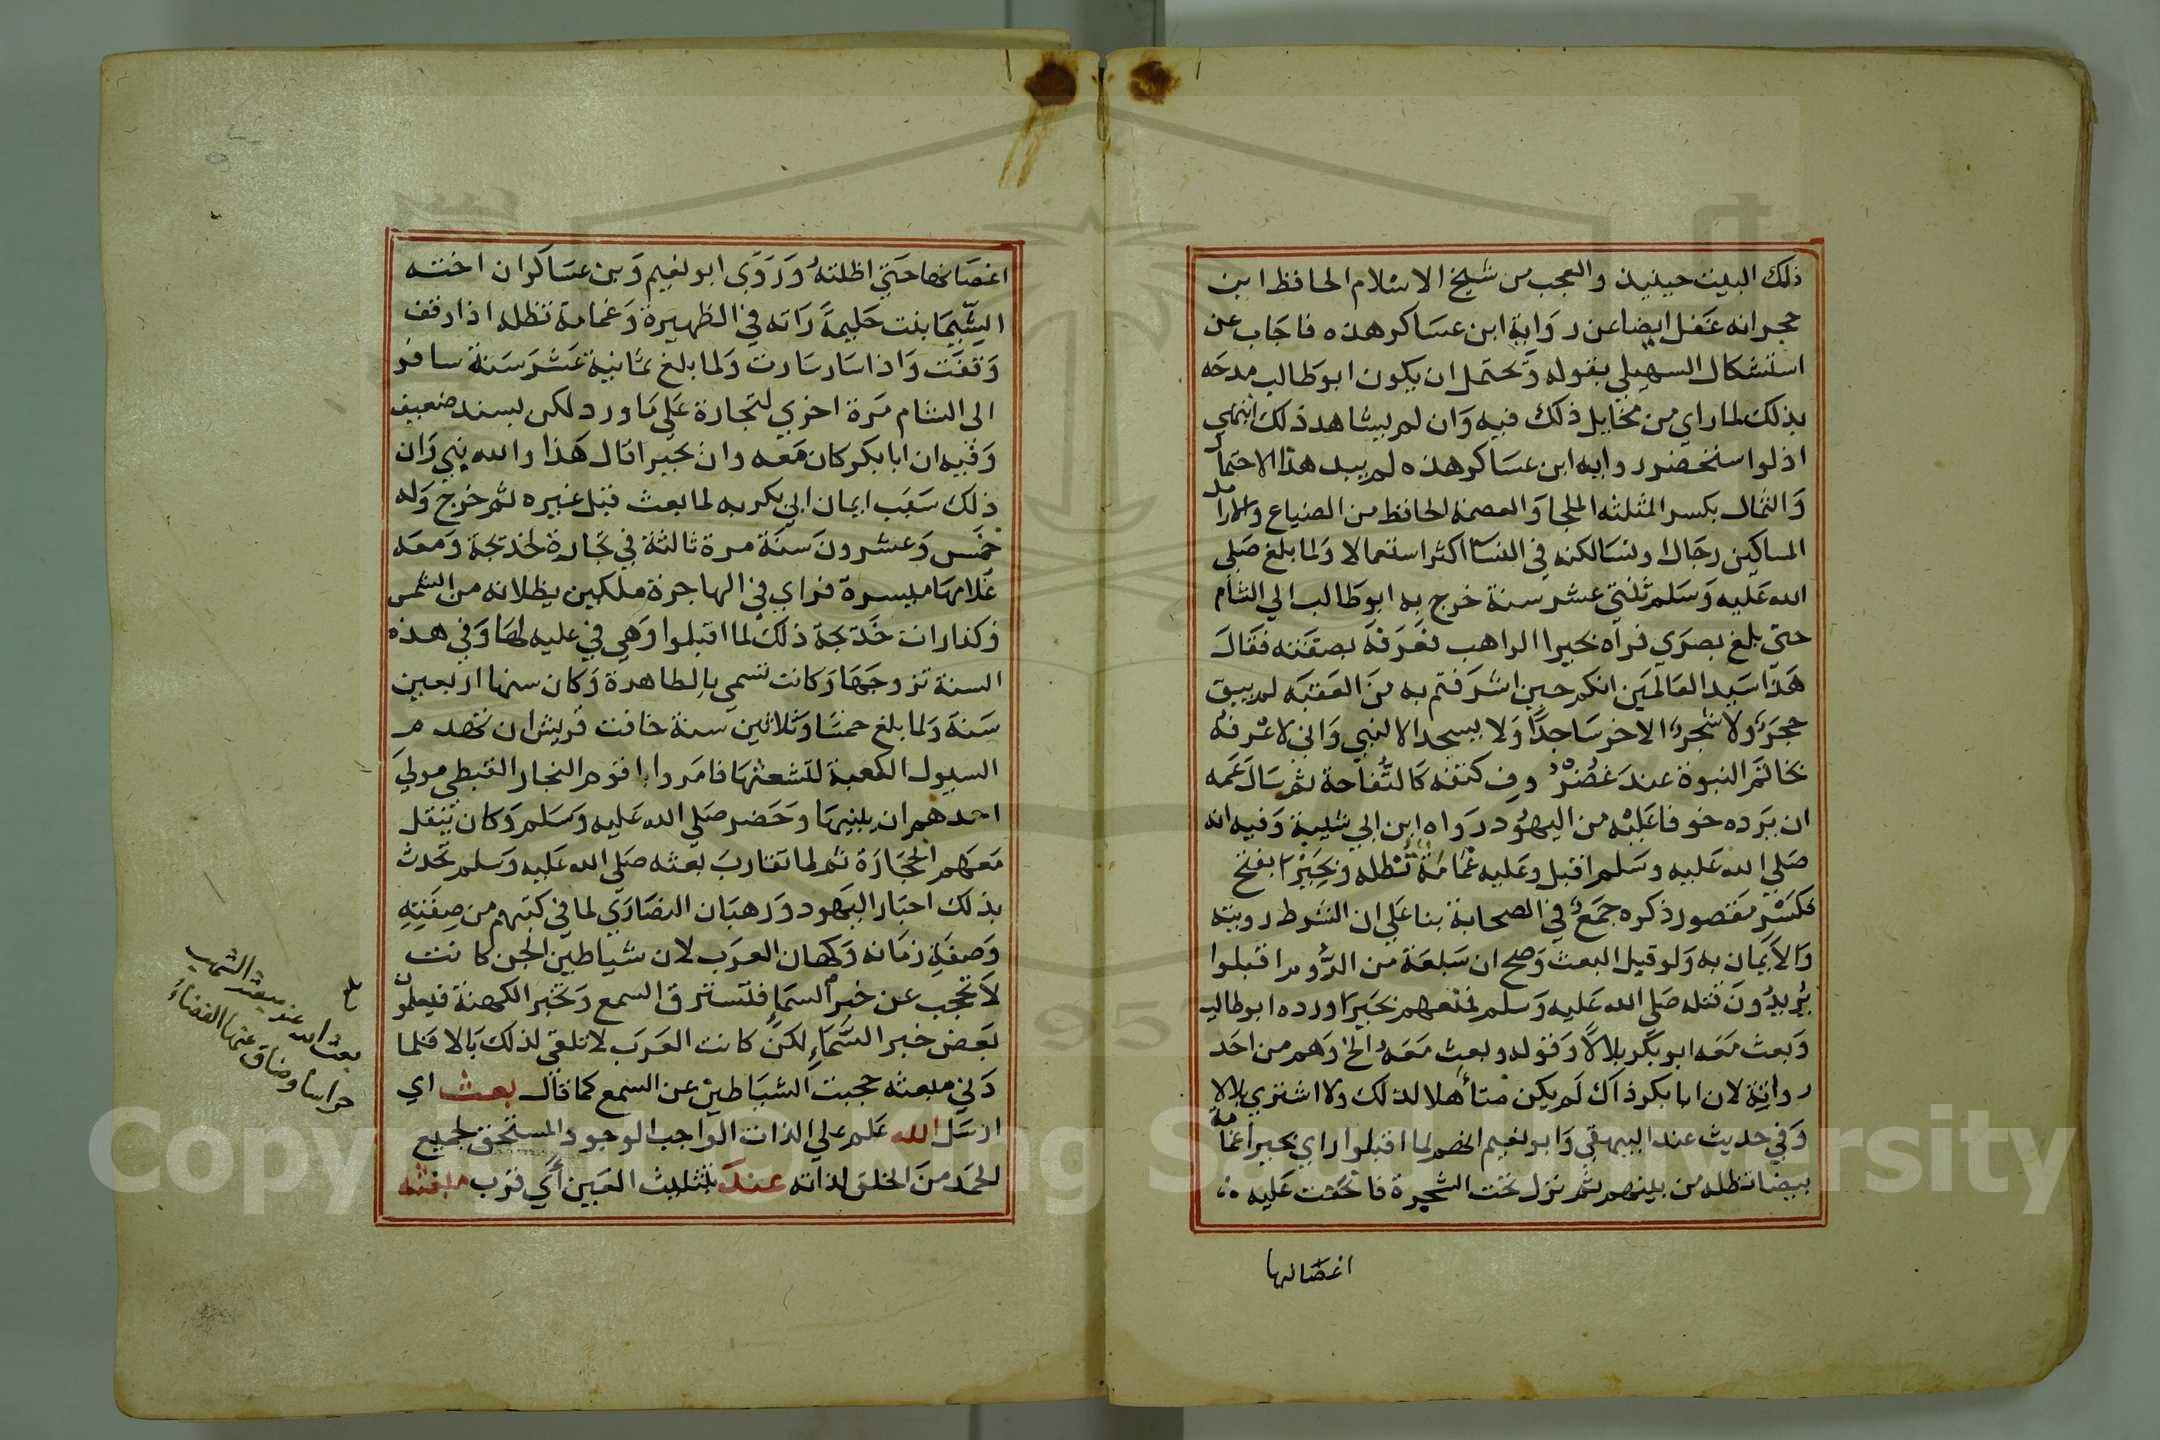 ذلك البيت حينيذ والعجب من شيخ الاسلام الحافظ ابن
حجر انه غفل ايضا عن رواية ابن عساكر هذه فاجاب عن
استشكال السهيلي بقوله ويحتمل ان يكون ابو طالب مدحه
بذلك لما راي من مخايل ذلك فيه وان لم يشاهد ذلك انتهي
اذ لو استحضر رواية ابن عساكر هذه لم يبد هذا الاحتمال
والثمال بكسر المثلثه الملجا والعصمة الحافظ من الضياع والارامل
المساكين رجالا ونسا لكنه في النسا اكثر استعمالا ولما بلغ صلي
الله عليه وسلم ثنتي عشر سنة خرج به ابو طالب الي الشام
حتي بلغ بصري فراه بحيرا الراهب فعرفه بصفته فقال
هذا سيد العالمين انكم حين اشرفتم به من العقبه لم يبق
حجر ولا شجر الا خر ساجدا ولا يسجد الا لنبي واني لاعرفه
بخاتم النبوة عند غضر وف كتفه كالتفاحة ثم سال عمه
ان يرده خوفا عليه من اليهود رواه ابن ابي شيبة وفيه انه
صلي الله عليه وسلم اقبل وعليه غمامة تظله وبحيرا بفتح
فكسر مقصور ذكره جمع في الصحابة بنا علي ان الشرط رويته
والايمان به ولو قبل البعث وصح ان سبعة من الروم اقبلوا
يريدون قتله صلي الله عليه وسلم فمنعهم بحيرا ورده ابو طالب
وبعث معه ابو بكر بلالا وقوله وبعث معه الخ وهم من احد
رواته لان ابا بكر ذاك لم يكن متأهلا لذلك ولا اشتري بلالا
وفي حديث عند البيهقي وابو نعيم انهم لما اقبلوا راي بحيرا غمامة
بيضا تظله من بينهم ثم نزل تحت الشجرة فاتحفت عليه
اغصانها
اغصانها حتي اظلته وروي ابو نعيم وبن عساكر ان اخته
الشيما بنت حليمة راته في الظهيرة وغمامة تظله اذا وقف
وقفت واذا سار سارت ولما بلغ ثمانية عشر سنة سافر
الى الشام مرة اخري لتجارة علي ما ورد لكن بسند ضعيف
وفيه ان ابا بكر كان معه وان بحيرا قال هذا والله نبي وان
ذلك سبب ايمان ابي بكر به لما بعث قبل غيره ثم خرج وله
خمس وعشرون سنة مرة ثالثة في تجارة لخديجة ومعه
غلامها ميسرة فراي في الهاجرة ملكين يظلانه من الشمس
وكذا رات خديجة ذلك لما اقبلوا وهي في عليه لها وفي هذه
السنة تزوجها وكانت تسمي بالطاهرة وكان سنها اربعين
سنة ولما بلغ خمسا وثلاثين سنة خافت قريش ان تهدم
السيول الكعبة لتشعثها فامروا باقوم النجار القبطي مولي
احدهم ان يبنيها وحضر صلي الله عليه وسلم وكان ينقل
معهم الحجارة ثم لما تقارب بعثه صلي الله عليه وسلم تحدث
بذلك احبار اليهود ورهبان النصاري لما في كتبهم من صفته
وصفة زمانه وكهان العرب لان شياطين الجن كانت
لا تحجب عن خبر السما فتسترق السمع وتخبر الكهنة فيعلمون
بعض خبر السماء لكن كانت العرب لا تلقي لذلك بالا فلما
دني مبعثه حجبت الشياطين عن السمع كما قال بعث اي
ارسل الله علم علي الذات الواجب الوجود المستحق لجميع
الحمد من الخلق لذاته عند بتثليث العين أي قرب مبعثه
بعث الله عند مبعثه الشهب
حراسا وضاق عنها الفضاء
Copyright © King Saud University